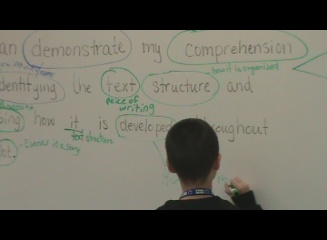 an demonstrate my comprehension
how it is organized
dentifying the text structure and
piece of
writing
bing how it is developed throughout
text structure
ot. - Events in a story